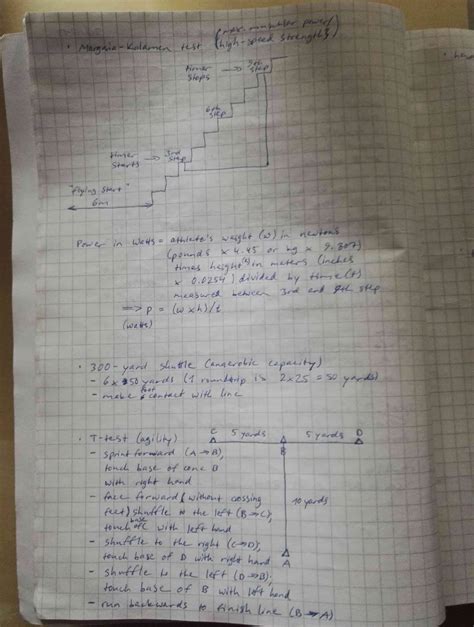 • Margaria-Kalamen test (max. muscular power/
high-speed strength)
timer → 9th
stops step
6th
step
timer → 3rd
starts step
"Flying start"
6m
Power in watts = athlete's weight (w) in newtons
(pounds x 4.45 or kg x 9.807)
times height (h) in meters (inches
x 0.0254) divided by time (t)
measured between 3rd and 9th step
=> P = (w x h)/t
(watts)
• 300-yard shuttle (anaerobic capacity)
- 6 x 50 yards (1 roundtrip is 2x25 = 50 yards)
- make foot contact with line
• T-test (agility) C 5 yards A 5 yards D
- sprint forward (A→B), B
touch base of cone B
with right hand
- face forward (without crossing 10 yards
feet) shuffle to the left (B→C),
touch base of C with left hand
- shuffle to the right (C→D),
touch base of D with right hand A
- shuffle to the left (D→B),
touch base of B with left hand
- run backwards to finish line (B→A)